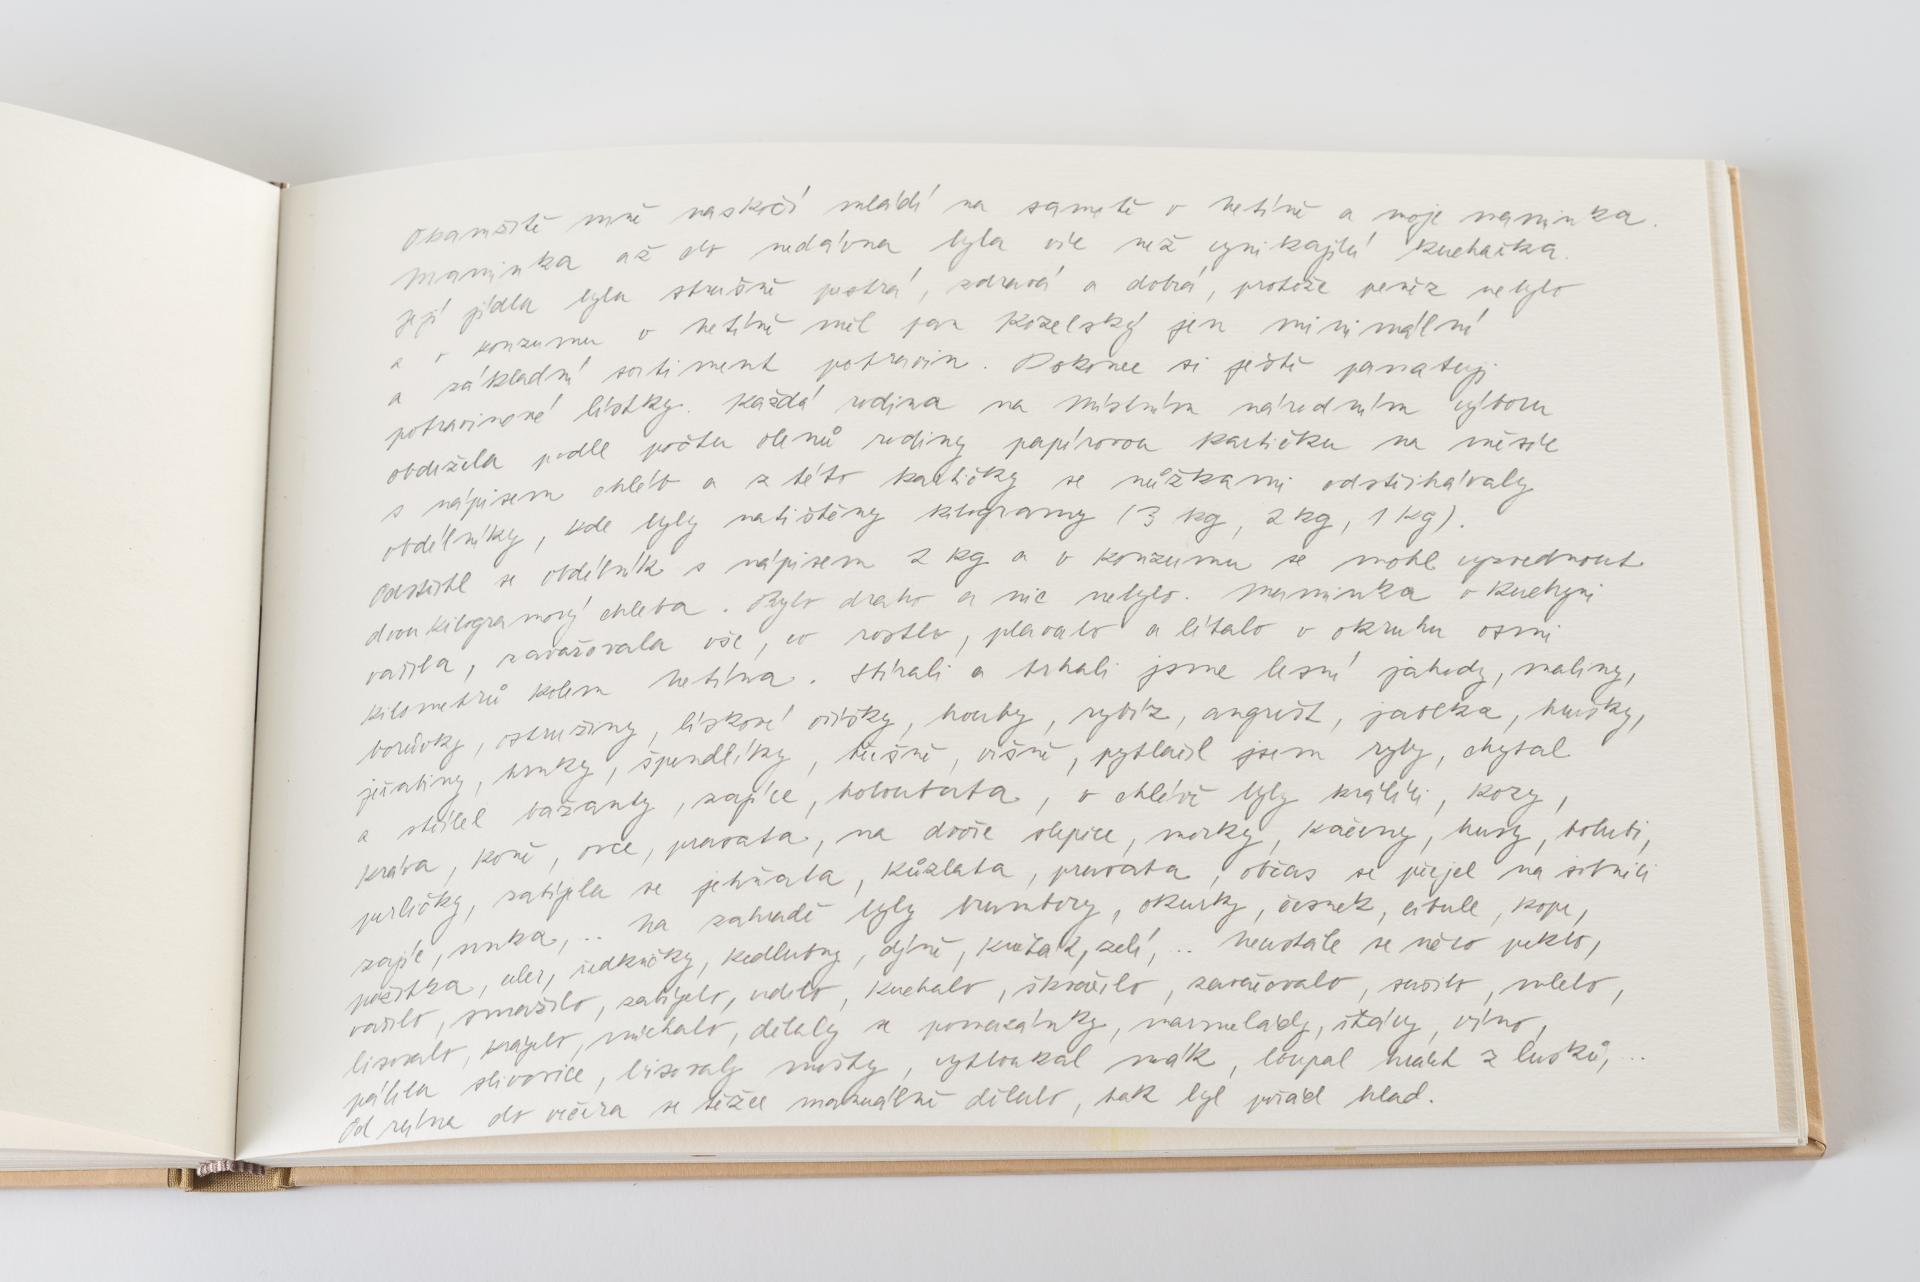 Okamžitě mně naskočí mládí na samotě v Netíně a moje maminka.
Maminka až do nedávna byla víc než vynikající kuchařka.
Její jídla byla strašně pestrá, zdravá a dobrá, protože peněz nebylo
a v konzumu v Netíně měl pan Kozelský jen minimální
a základní sortiment potravin. Dokonce si ještě pamatuji
potravinové lístky. Každá rodina na Místním národním výboru
obdržela podle počtu členů rodiny papírovou kartičku na měsíc
s nápisem chléb a z této kartičky se nůžkami odstřihávaly
obdélníky, kde byly natištěny kilogramy (3 kg, 2 kg, 1 kg).
Odstřihl se obdélník s nápisem 2 kg a v konzumu se mohl vyzvednout
dvoukilogramový chleba. Bylo draho a nic nebylo. Maminka v kuchyni
vařila, zavařovala vše, co rostlo, plavalo a lítalo v okruhu osmi
kilometrů kolem Netína. Sbírali a trhali jsme lesní jahody, maliny,
borůvky, ostružiny, lískové oříšky, houby, rybíz, angrešt, jablka, hrušky,
jeřabiny, trnky, špendlíky, třešně, višně, pytlačil jsem ryby, chytal
a střílel bažanty, zajíce, holoubata, v chlévě byly králíci, kozy,
kráva, koně, ovce, prasata, na dvoře slepice, morky, kačeny, husy, holubi,
perličky, zabíjela se jehňata, kůzlata, prasata, občas se přijel na silnici
zajíc, srnka,.. Na zahradě byly brambory, okurky, česnek, cibule, kopr,
pažitka, celer, ředkvičky, kedlubny, dýně, květák, zelí,.. Neustále se něco peklo,
vařilo, smažilo, zabíjelo, udilo, kuchalo, škvařilo, zavařovalo, sušilo, mlelo,
lisovalo, krájelo, míchalo, dělaly se pomazánky, marmelády, šťávy, víno,
pálila slivovice, lisovaly mošty, vytloukal mák, loupal hrách z lusků,...
Od rána do večera se těžce manuálně dělalo, tak byl pořád hlad.